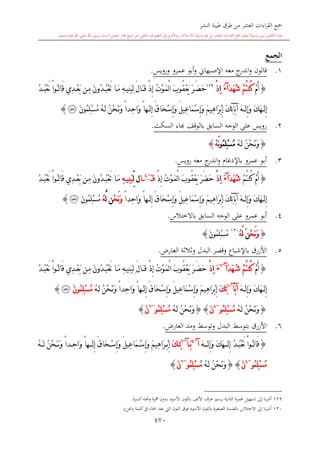 جمع القراءات العشر من طرق طيبة النشر
الجمع
١. قالون واندرج معه الإصبهاني وأبو عمرو ورويس.
﴿ أَمْ كُنتُمْ شُهَدَآءَ إِذْ حَضَرَ يَعْقُوبَ الْمَوْتُ إِذْ قَالَ لِبَنِيهِ مَا تَعْبُدُونَ مِنۢ بَعْدِى قَالُوا۟ نَعْبُدُ
إِلَـٰهَكَ وَإِلَـٰهَ ءَابَآئِكَ إِبْرَٰهِيمَ وَإِسْمَـٰعِيلَ وَإِسْحَـٰقَ إِلَـٰهًا وَٰحِدًا وَنَحْنُ لَهُۥ مُسْلِمُونَ ﴾
٢. رويس على الوجه السابق بالوقف بهاء السكت.
﴿ وَنَحْنُ لَهُۥ مُسْلِمُونَهْ ﴾
٣. أبو عمرو بالإدغام واندرج معه رويس.
﴿ أَمْ كُنتُمْ شُهَدَآءَ إِذْ حَضَرَ يَعْقُوبَ الْمَوْتُ إِذْ قَال لِّبَنِيهِ مَا تَعْبُدُونَ مِنۢ بَعْدِى قَالُوا۟ نَعْبُدُ
إِلَـٰهَكَ وَإِلَـٰهَ ءَابَآئِكَ إِبْرَٰهِيمَ وَإِسْمَـٰعِيلَ وَإِسْحَـٰقَ إِلَـٰهًا وَٰحِدًا وَنَحْن لَّهُۥ مُسْلِمُونَ ﴾
٤. أبو عمرو على الوجه السابق بالاختلاس.
﴿ وَنَحْنُ لَهُۥ مُسْلِمُونَ ﴾
٥. الأزرق بالإشباع وقصر البدل وثلاثة العارض.
﴿ أَمْ كُنتُمْ شُهَدَآءَ إِذْ حَضَرَ يَعْقُوبَ الْمَوْتُ إِذْ قَالَ لِبَنِيهِ مَا تَعْبُدُونَ مِنۢ بَعْدِى قَالُوا۟ نَعْبُدُ
إِلَـٰهَكَ وَإِلَـٰهَ ءَابَآئِكَ إِبْرَٰهِيمَ وَإِسْمَـٰعِيلَ وَإِسْحَـٰقَ إِلَـٰهًا وَٰحِدًا وَنَحْنُ لَهُۥ مُسْلِمُونَ
﴿ وَنَحْنُ لَهُۥ مُسْلِمُونَ ﴾ ﴿ وَنَحْنُ لَهُۥ مُسْلِمُونَ ﴾
٦. الأزرق بتوسط البدل وتوسط ومد العارض.
﴿ قَالُوا۟ نَعْبُدُ إِلَـٰهَكَ وَإِلَـٰهَ ءَابَآئِكَ إِبْرَٰهِيمَ وَإِسْمَـٰعِيلَ وَإِسْحَـٰقَ إِلَـٰهًا وَٰحِدًا وَنَحْنُ لَهُۥ
مُسْلِمُونَ ﴾ ﴿ وَنَحْنُ لَهُۥ مُسْلِمُونَ ﴾
١٢٩ أشرنا إلى تسهيل الهمزة الثانية برسم حرف الألف باللون الأسود بدون همزة وتحته كسرة.
١٣٠ أشرنا إلى الاختلاس بالضمة الصغيرة باللون الأسود فوق النون التي بعد الحاء في كلمة (نحن).
٤٧٠